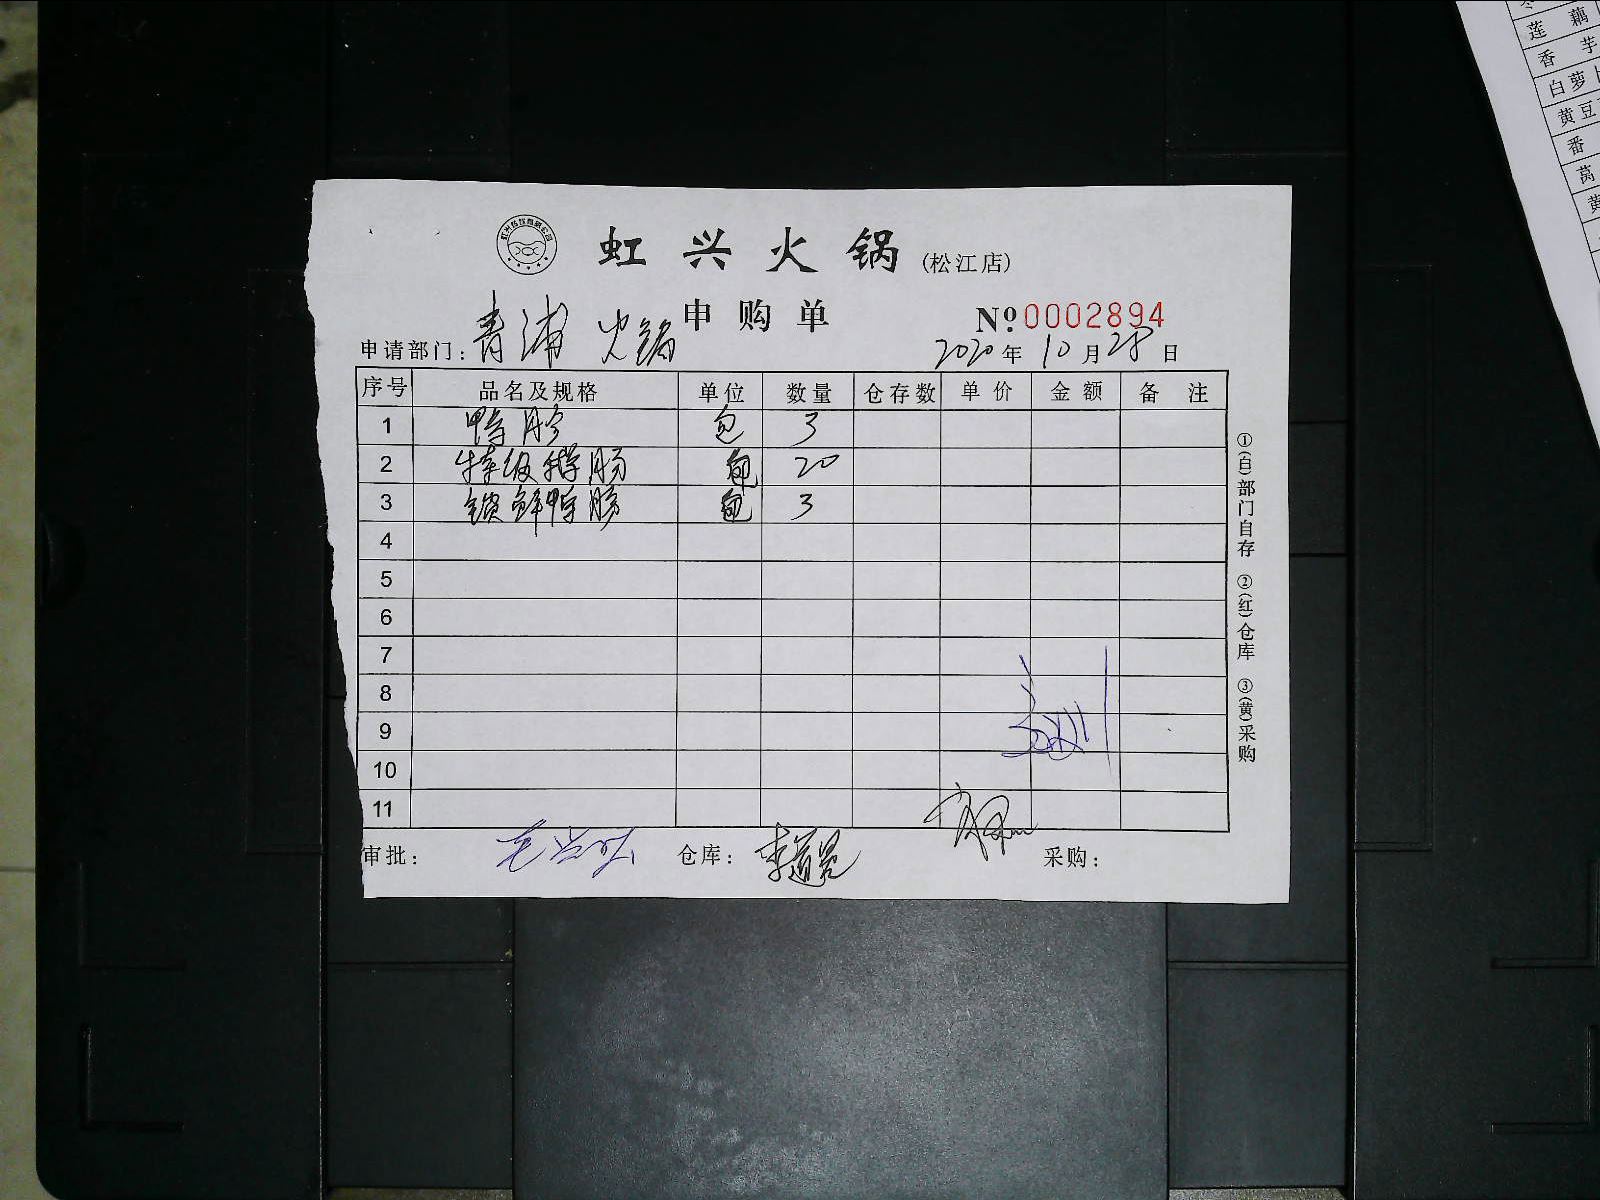 虹兴火锅(松江店)
申购单
№0002894
申请部门:青浦 火锅
2020年10月28日
序号 品名及规格 单位 数量 仓存数 单价 金额 备注
1 鸭胗 包 3
2 特级鹅肠 包 20
3 锁鲜鸭肠 包 3
4
5
6
7
8
9
10
11
审批: 仓库: 采购:
①(白)部门自存 ②(红)仓库 ③(黄)采购
莲藕
香芋
白萝卜
黄豆
番
莴
黄